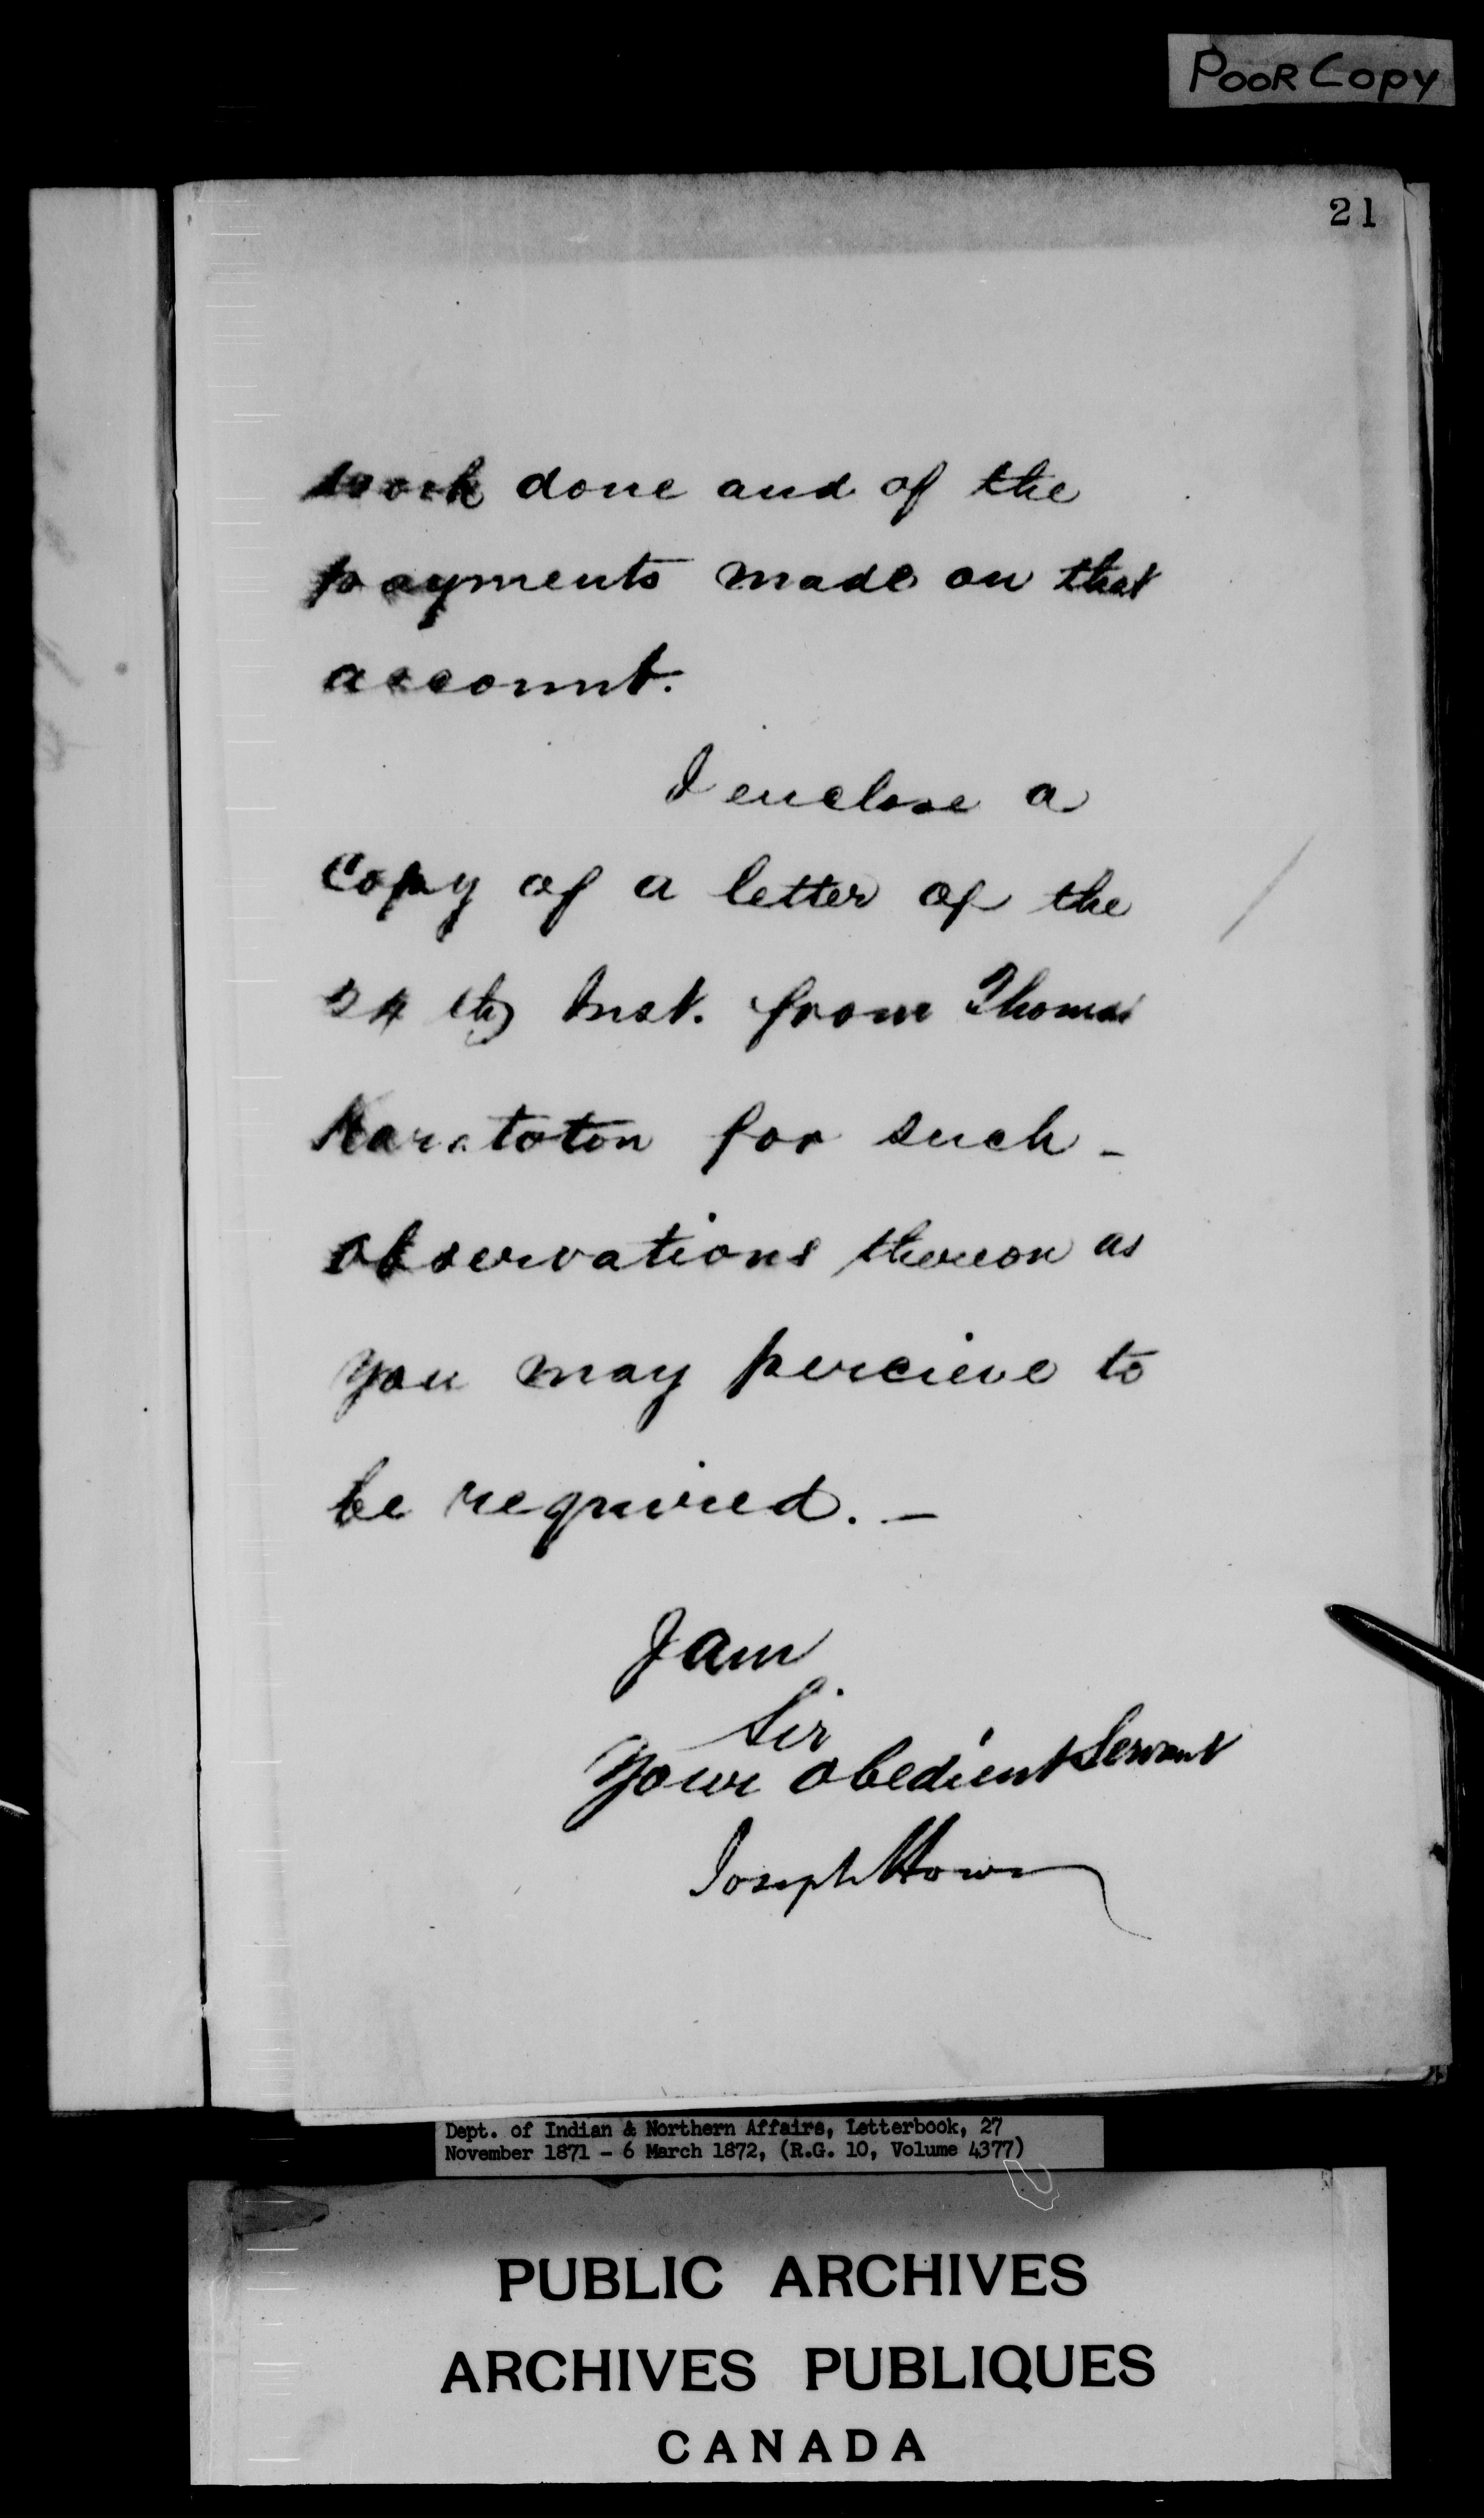 POOR COPY
21
work done and of the
payments made on that
account.
I enclose a
Copy of a letter of the
24th Inst. from Thomas
for such -
observations thereon as
you may percieve to
be required. -
I am
Sir
Your obedient Servant
Joseph Howe
Dept. of Indian & Northern Affairs, Letterbook, 27
November 1871 - 6 March 1872, (R.G. 10, Volume 4377)
PUBLIC ARCHIVES
ARCHIVES PUBLIQUES
CANADA